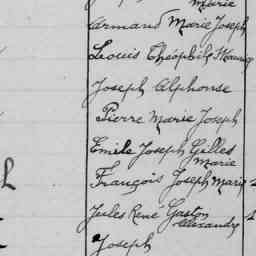 Marie
Armand Marie Joseph
Louis Théophile
Joseph Alphonse
Pierre Marie Joseph
Emile Joseph Gilles
Marie
François Joseph Marie
Jules René Gaston
Alexandre
Joseph